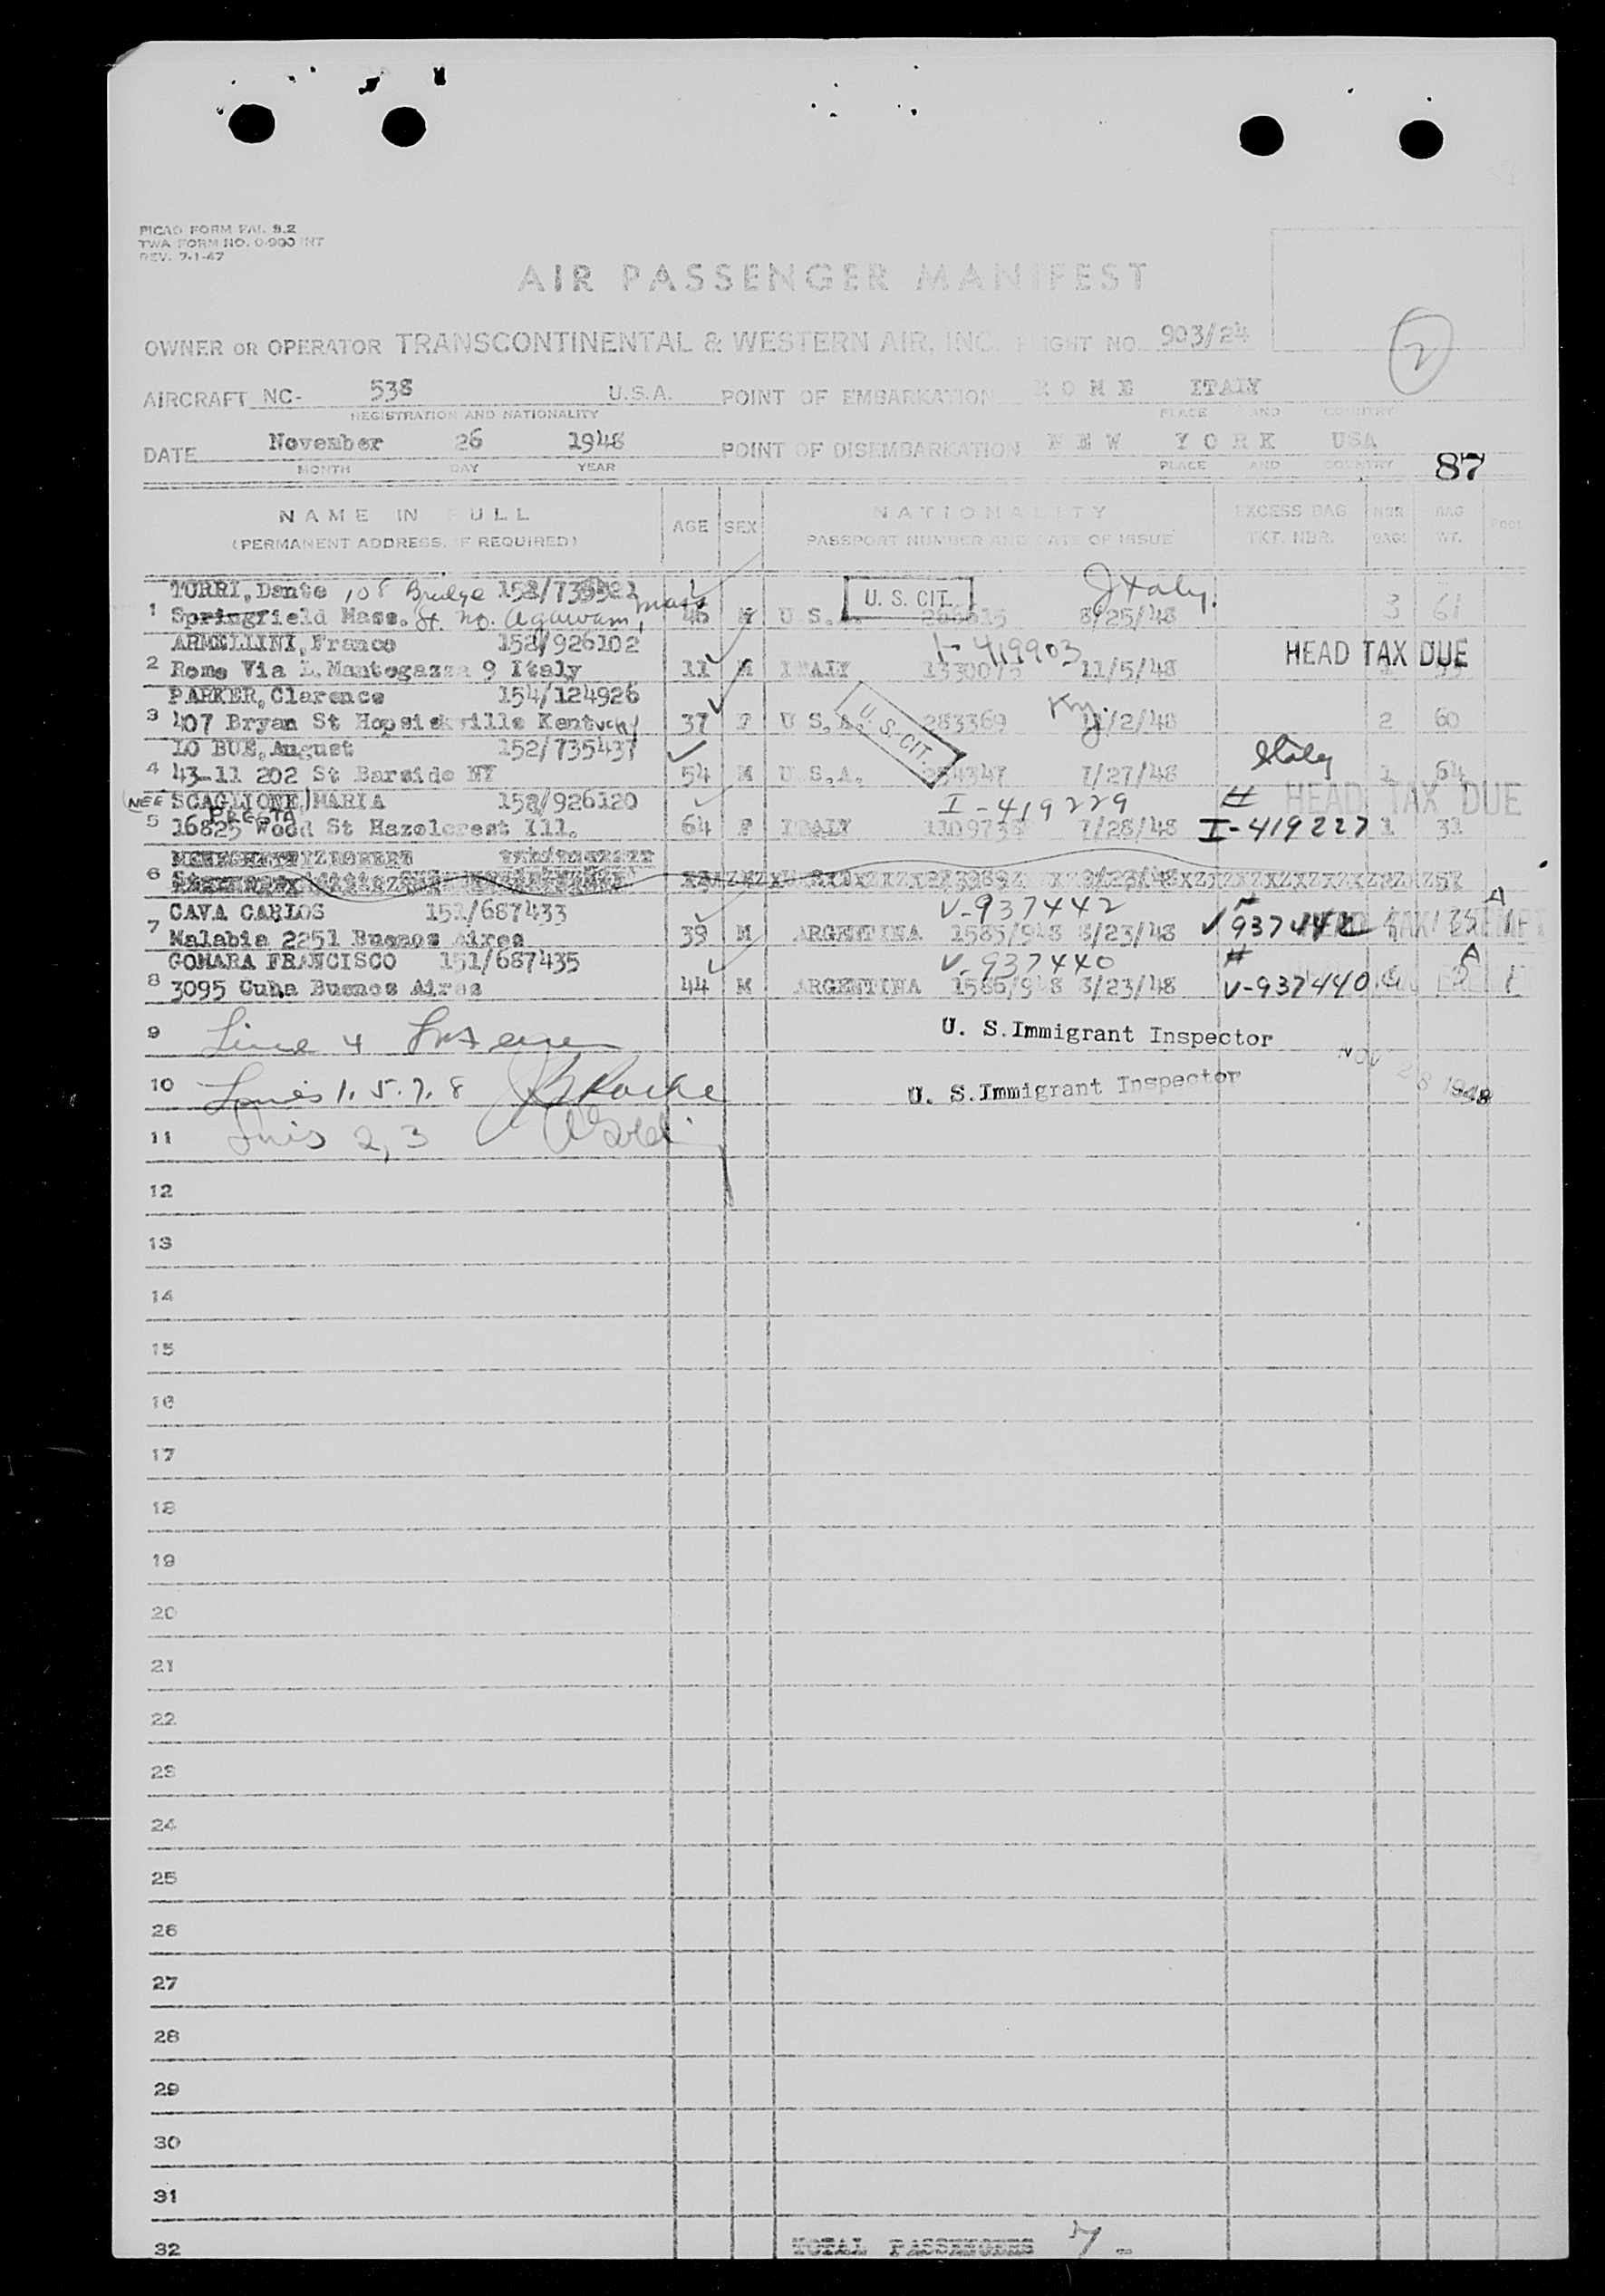 PICAO FORM FAL 9.2
TWA FORM NO. 0-900 INT
REV. 7-1-47
AIR PASSENGER MANIFEST
2
OWNER OR OPERATOR TRANSCONTINENTAL & WESTERN AIR, INC. FLIGHT NO. 903/24
AIRCRAFT NC- 538 U.S.A. POINT OF EMBARKATION ROME ITALY
REGISTRATION AND NATIONALITY PLACE AND COUNTRY
DATE November 26 1948 POINT OF DISEMBARKATION NEW YORK USA
MONTH DAY YEAR PLACE AND COUNTRY
87
NAME IN FULL AGE SEX NATIONALITY EXCESS BAG NBR. BAG
(PERMANENT ADDRESS, IF REQUIRED) PASSPORT NUMBER AND DATE OF ISSUE TKT. NBR. BAGS WT.
TORRI, Dante 108 Bridge U. S. CIT. Italy.
1 Springfield Mass. St. No. Agawam, Mass 46 M U S.A. 266615 8/25/48 3 61
ARMELLINI, Franco 152/926102 I-419903 HEAD TAX DUE
2 Rome Via L. Mantegazza 9 Italy 11 M ITALY 11/5/48
PARKER, Clarence 154/124926
3 407 Bryan St Hopsickville Kentucky 37 F U S.A. U. S. CIT. 283369 Ky. /2/48 2 60
LO BUE, August 152/735437
4 43-11 202 St Barside NY 54 M U.S.A. 254347 7/27/48 Italy 1 64
(NEE SCAGLIONE) MARIA 152/926120 I-419229 # HEAD TAX DUE
PRESTA
5 16825 Wood St Hazelcrest Ill. 64 F ITALY 7/28/48 I-419227 1 31
6
CAVA CARLOS 151/687433 V-937442 A
7 Malabia 2251 Buenos Aires 39 M ARGENTINA 1585/948 8/23/48 V 937442
GOMARA FRANCISCO 151/687435 V-937440 # A
8 3095 Cuba Buenos Aires 44 M ARGENTINA 1586/948 8/23/48 V-937440
9 Line 4 U. S. Immigrant Inspector
10 Lines 1. 5. 7. 8 U. S. Immigrant Inspector NOV 26 1948
11 Lines 2, 3
12
13
14
15
16
17
18
19
20
21
22
23
24
25
26
27
28
29
30
31
32 TOTAL PASSENGERS 7 -